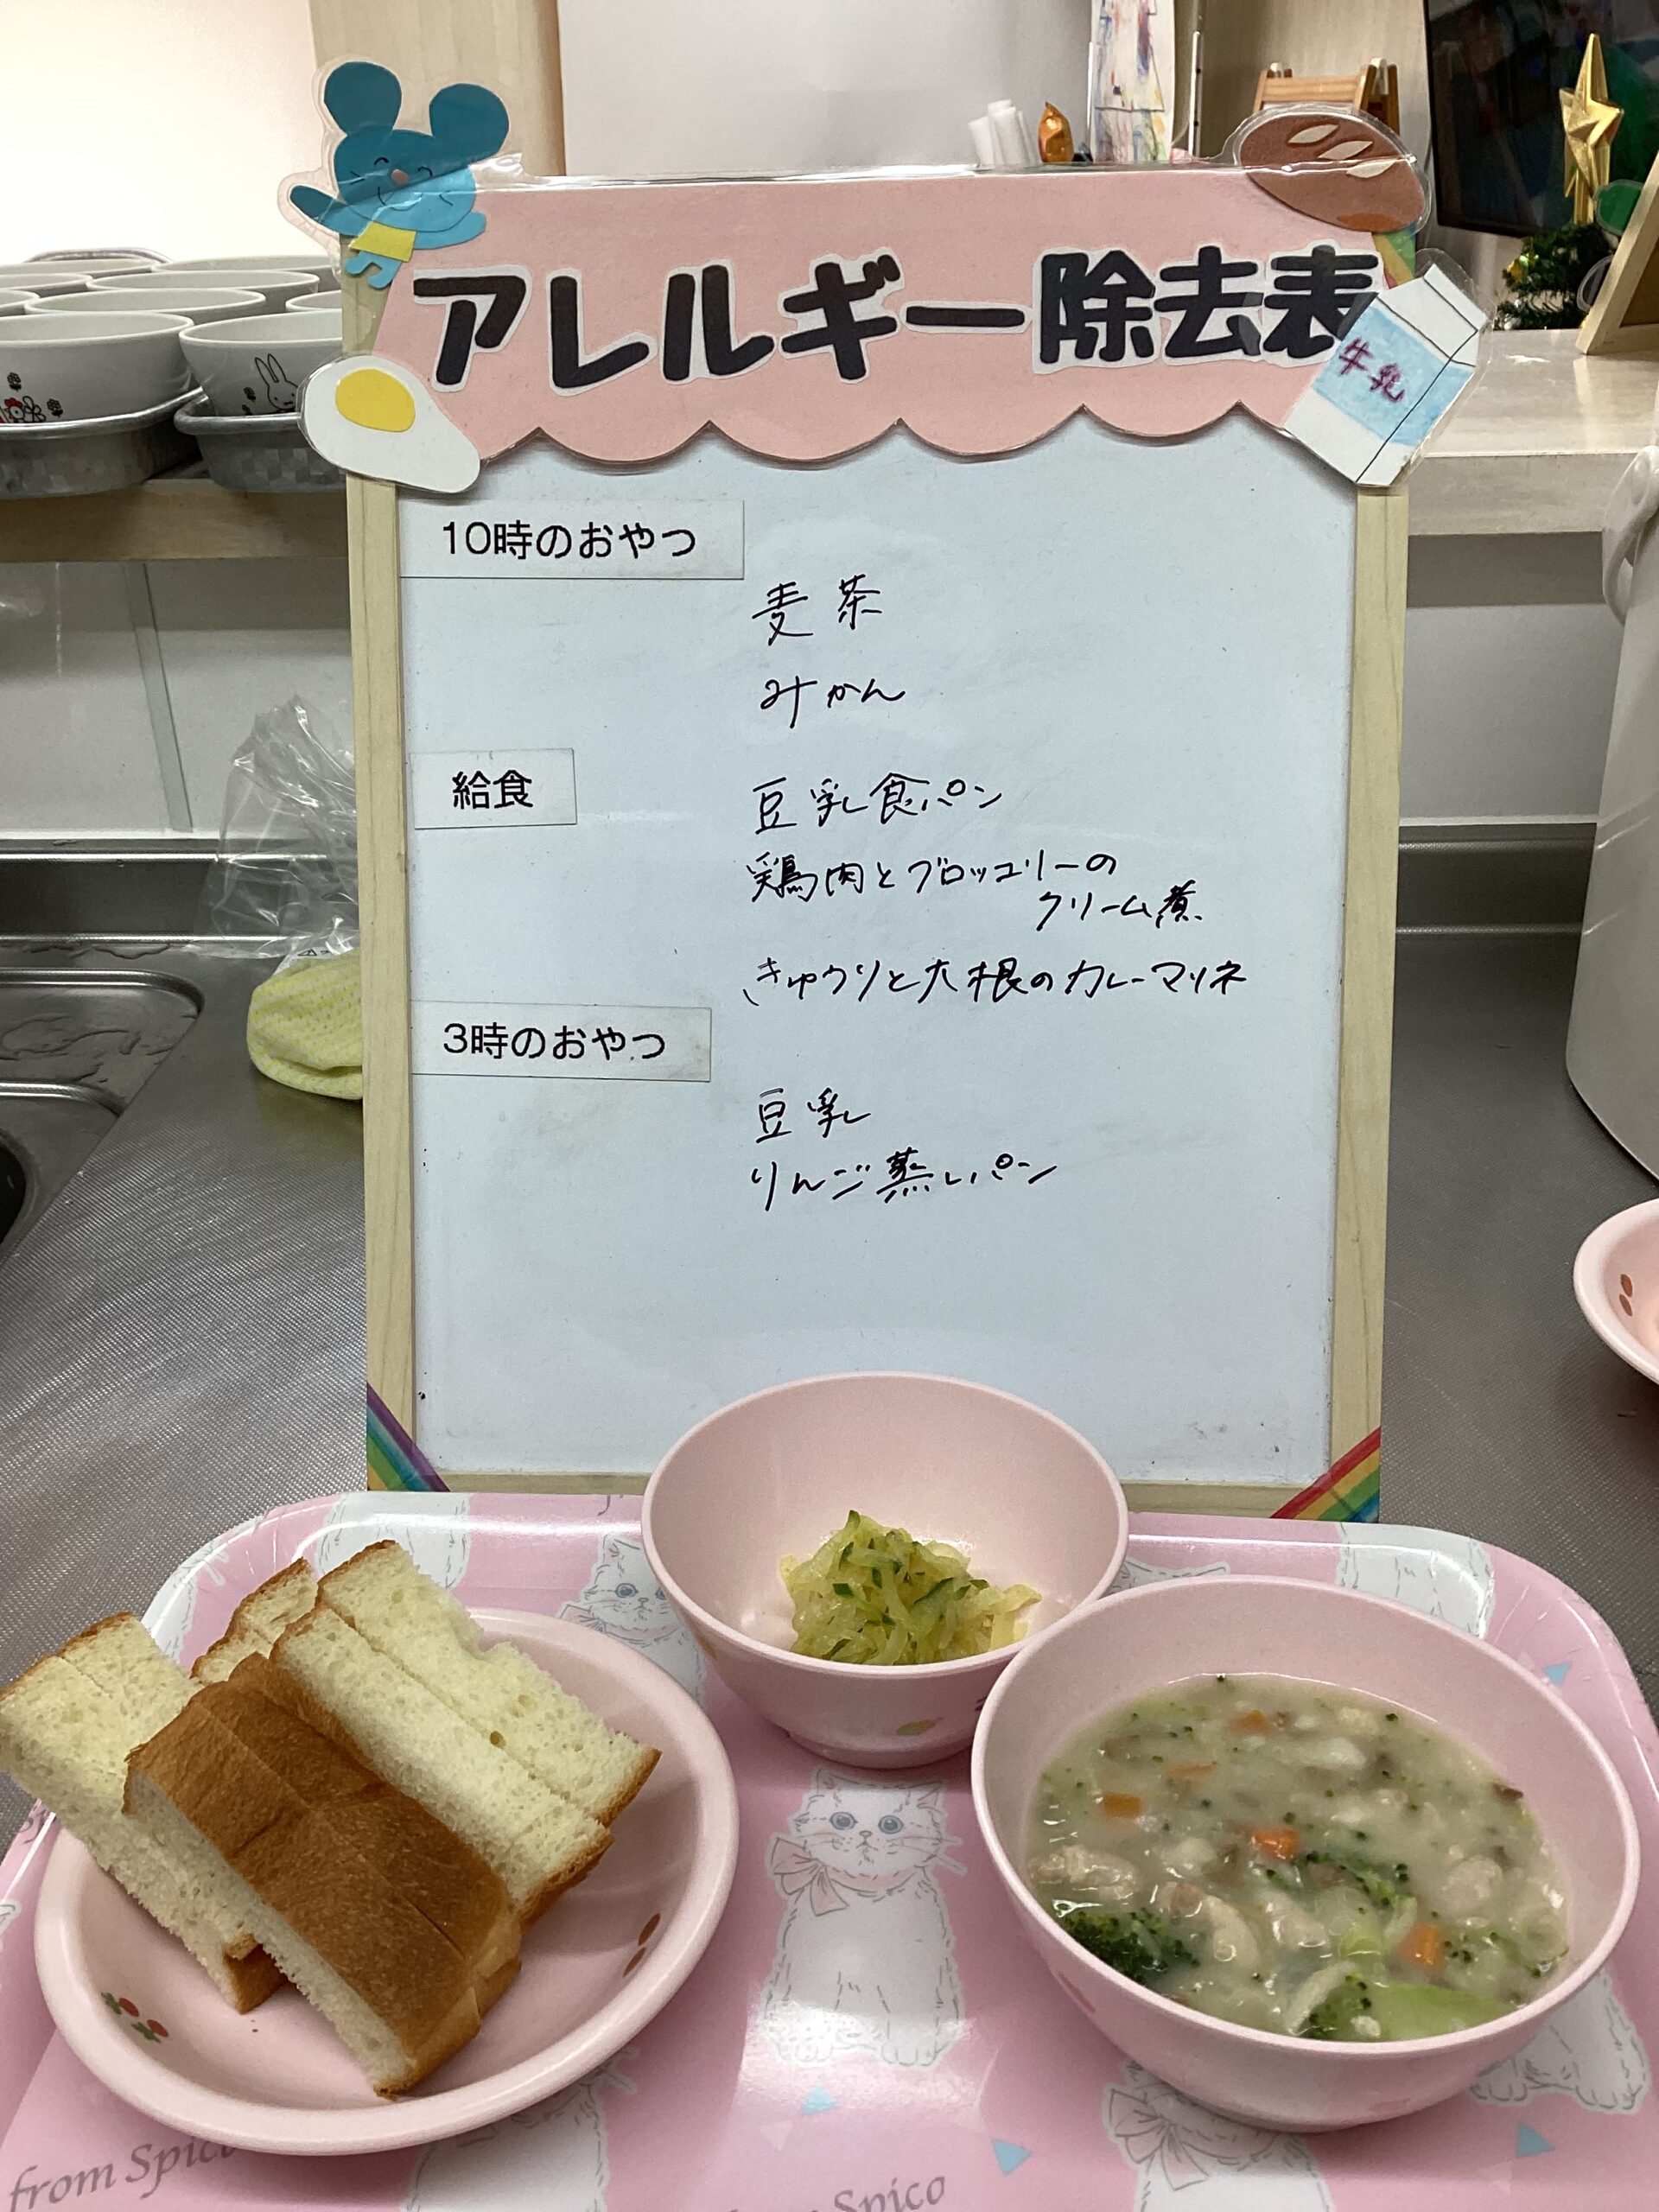 アレルギー除去表
牛乳
10時のおやつ
麦茶
みかん
給食
豆乳食パン
鶏肉とブロッコリーの
クリーム煮
きゅうりと大根のカレーマリネ
3時のおやつ
豆乳
りんご蒸しパン
from Spico
Spico